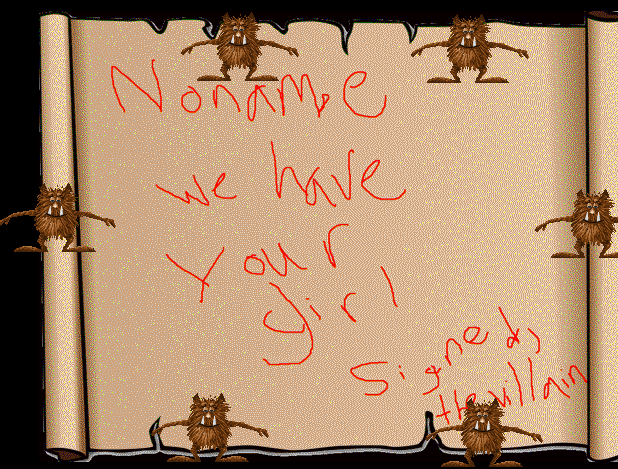 Noname
we have
your
girl
signed,
the villain